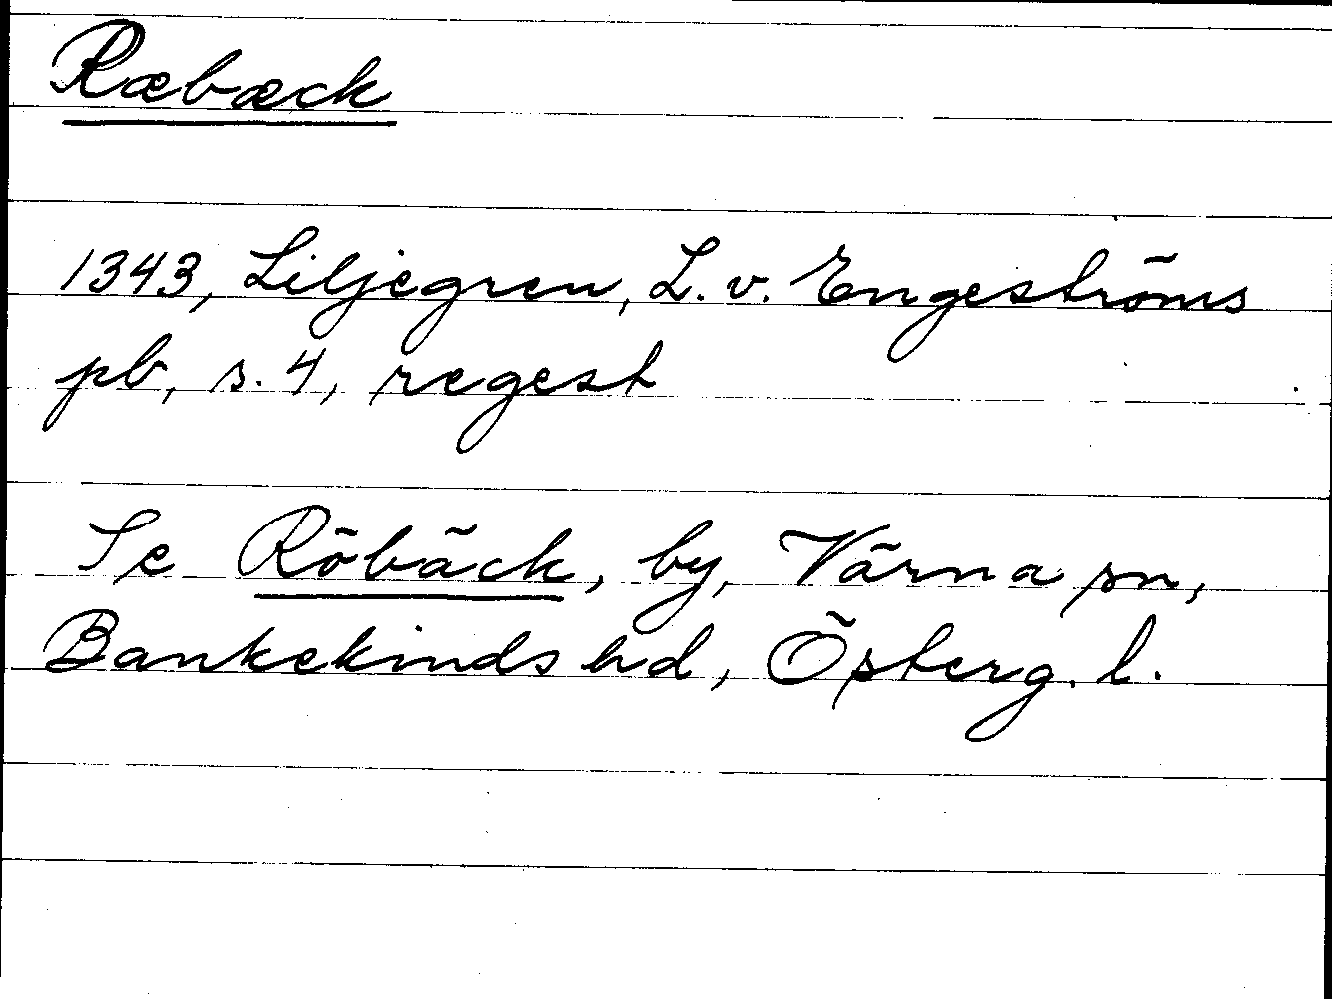 Ræbæck
1343, Liljegren, L. v. Engeströms
pb, s. 4, regest
Se Röbäck, by, Värna sn,
Bankekinds hd, Österg. l.